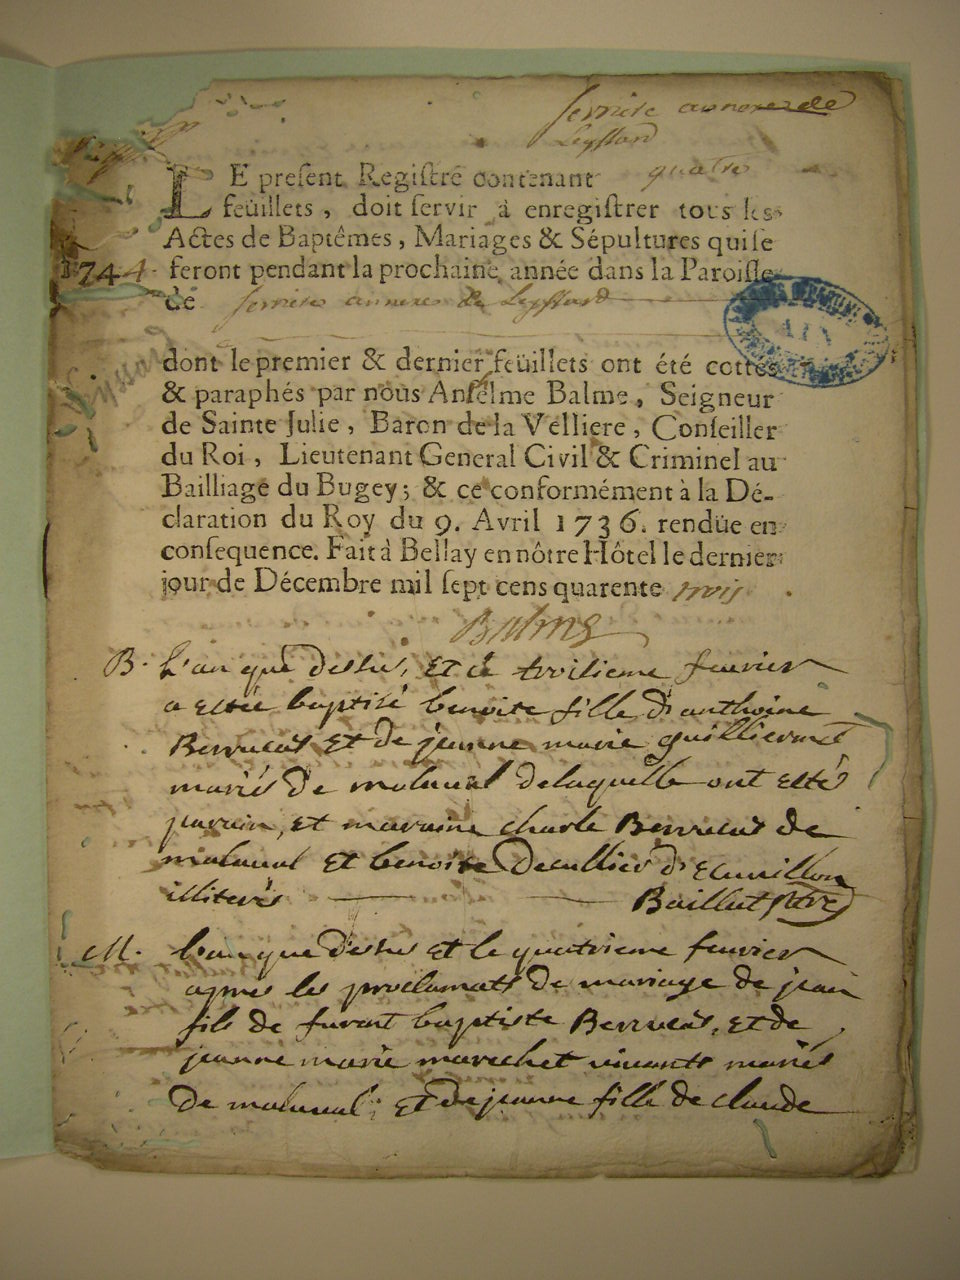 serriere annexe de
Leyssard
LE present Registre contenant quatre
feüillets, doit servir à enregistrer tous les
Actes de Baptêmes, Mariages & Sépultures qui se
1744 feront pendant la prochaine année dans la Paroisse
de serriere annexe de Leyssard
dont le premier & dernier feüillets ont été cottés
& paraphés par nous Anselme Balme, Seigneur
de Sainte Julie, Baron de la Velliere, Conseiller
du Roi, Lieutenant General Civil & Criminel au
Bailliage du Bugey; & ce conformément à la Dé-
claration du Roy du 9. Avril 1736. rendüe en
consequence. Fait à Bellay en nôtre Hôtel le dernier
jour de Décembre mil sept cens quarente trois
Balme
B. L'an que dessus, et le troisieme feuvrier
a estée baptisé benoite fille d'anthoine
Berrucas et de jeanne marie guilliermet
mariés de malaval delaquelle ont estés
parain, et maraine charle Berrucas de
malaval et benoite
illiterés Baillut ptre
M. L'an que dessus et le quatrieme feuvrier
apres les proclamats de mariage de jean
fils de furent baptiste Berrucas, et de
jeanne marie marechet vivants mariés
De malaval; et de jeanne fille de claude